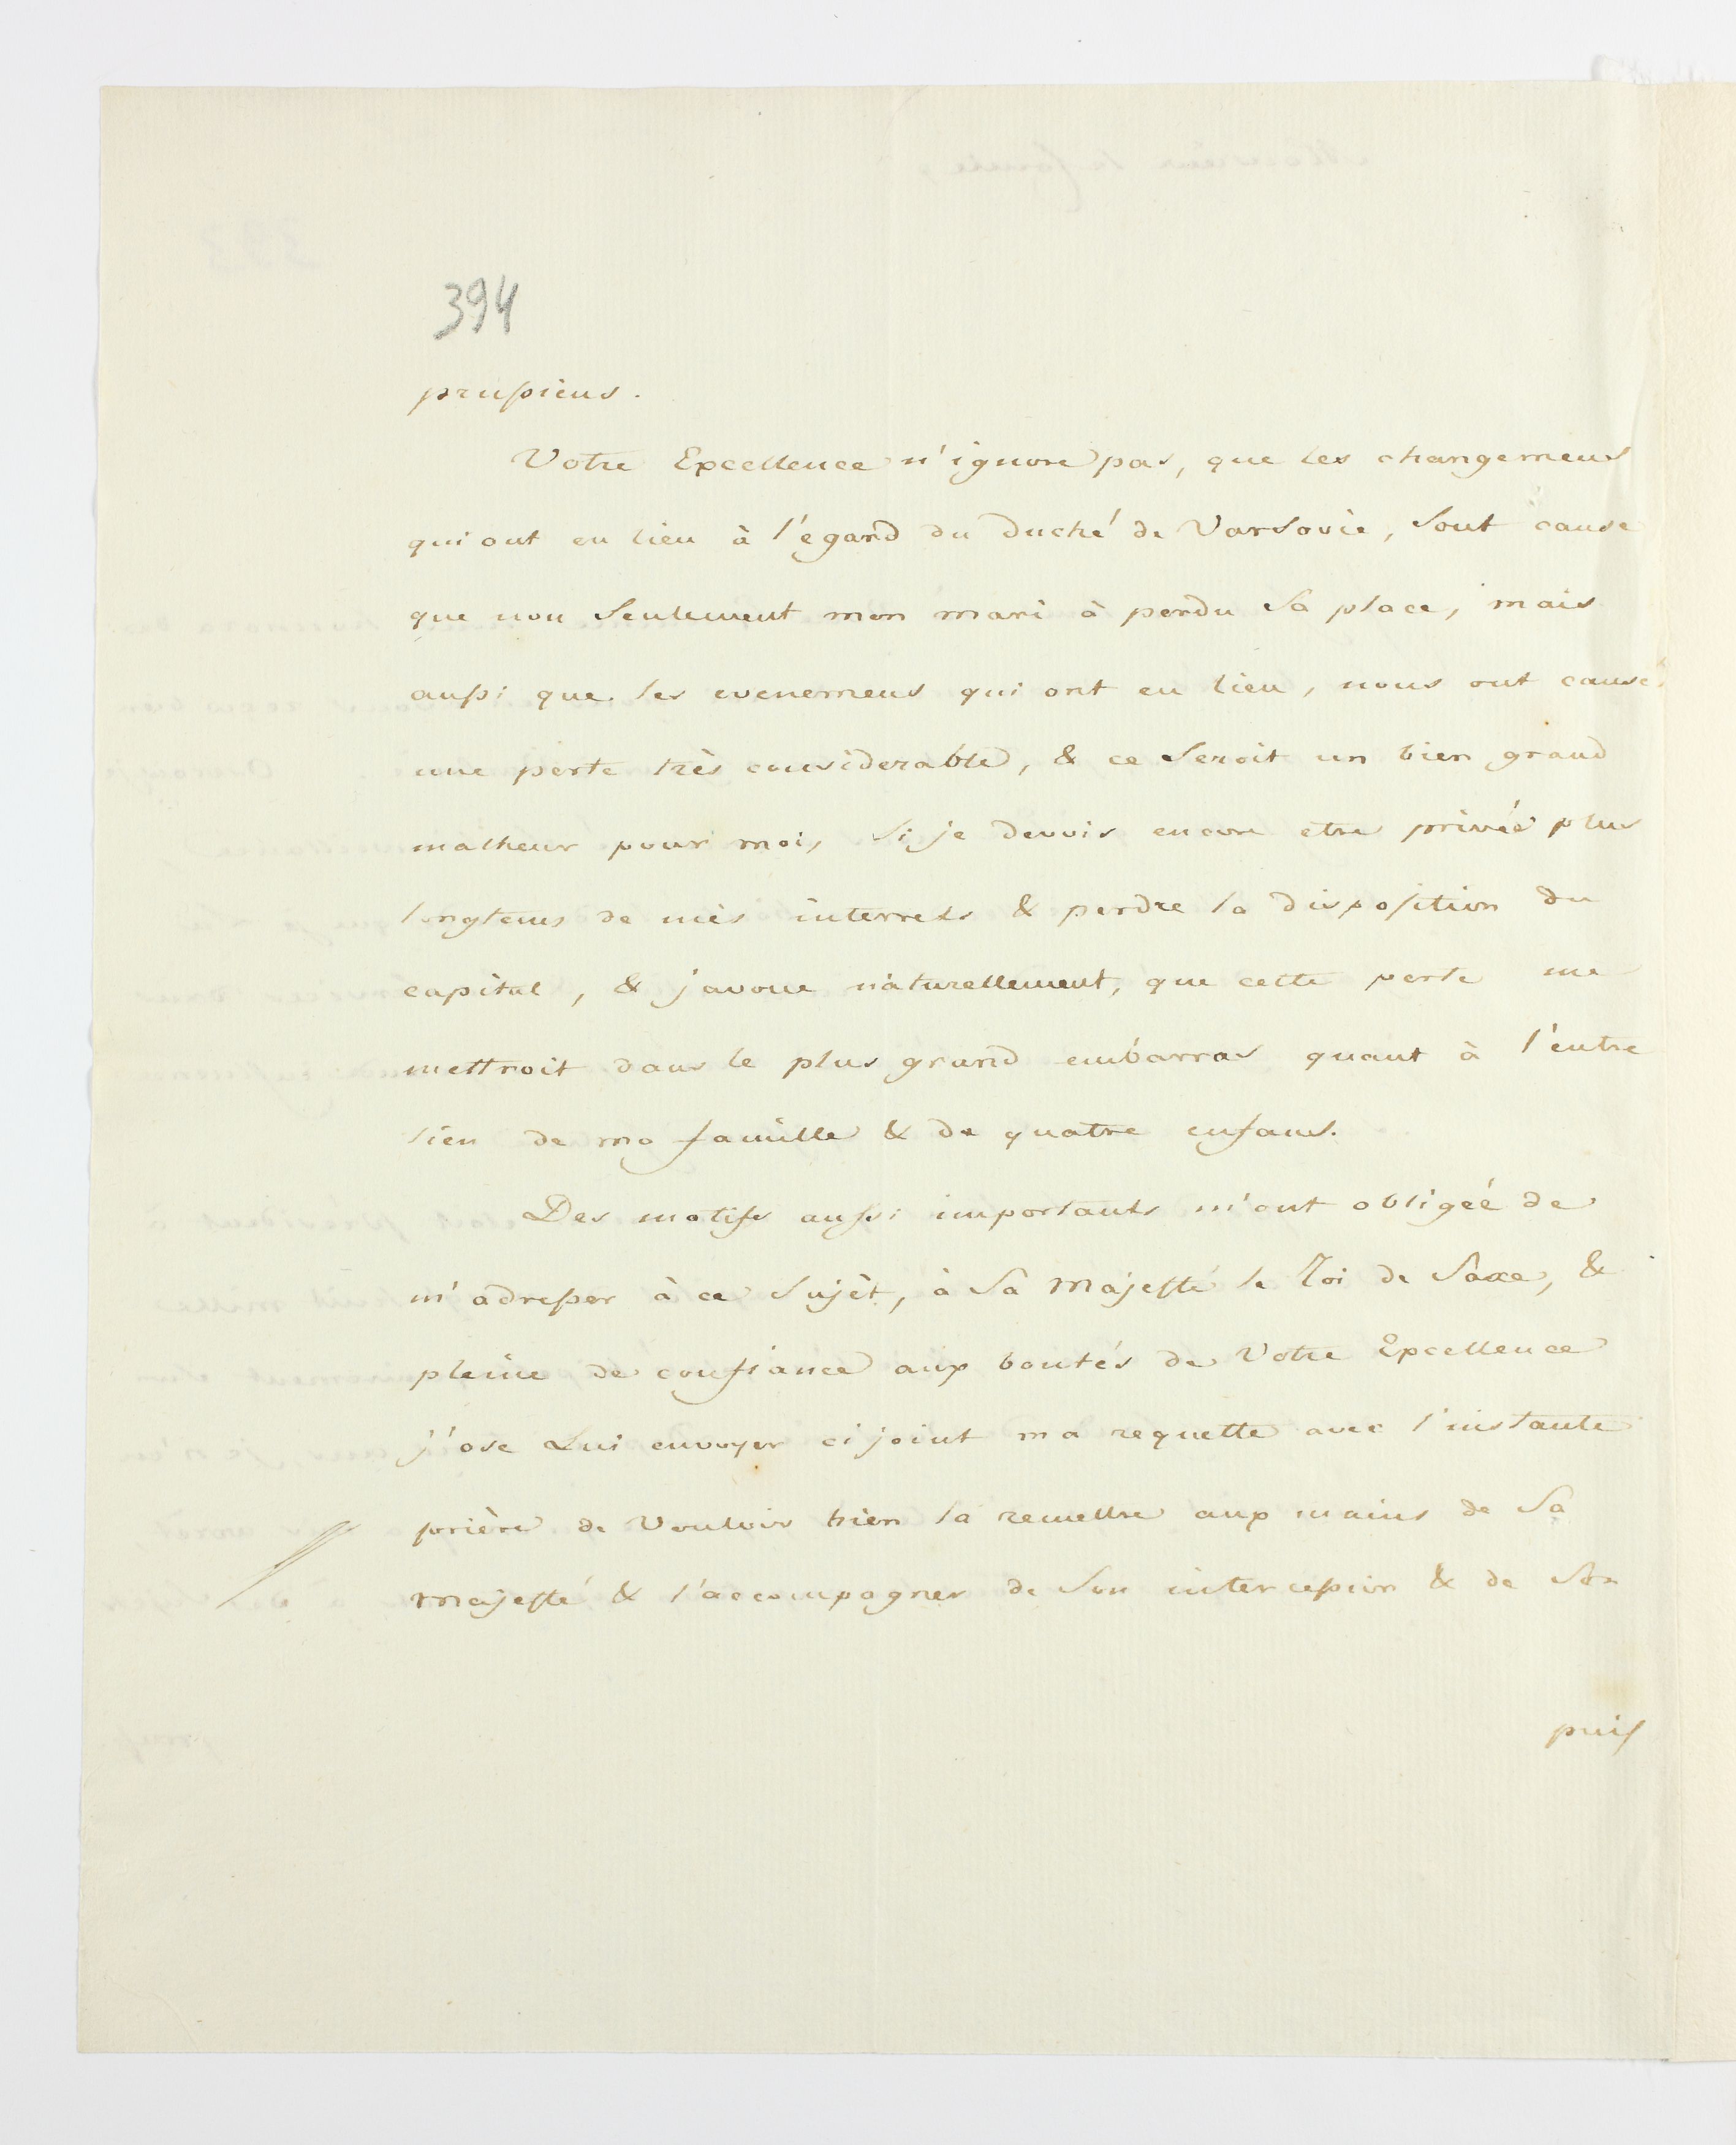 394
prussiens.
Votre Excellence n'ignore pas, que les changemens
qui ont eu lieu à l'égard du Duché de Varsovie, sont cause
que non seulement mon mari à perdu sa place, mais
aussi que les evenemens qui ont eu lieu, nous ont causé
une perte très considerable, & ce seroit un bien grand
malheur pour moi, si je devois encore etre privée plus
longtems de mes interrets & perdre la disposition du
capital, & j'avoue naturellement, que cette perte me
mettroit dans le plus grand embarras quant à l'entre
tien de ma famille & de quatre enfans.
Des motifs aussi importants m'ont obligée de
m'adresser à ce sujèt, à Sa Majesté le Roi de Saxe, &
pleine de confiance aux bontés de Votre Excellence
j'ose Lui envoyer ci joint ma requette avec l'instante
prière de vouloir bien la remettre aux mains de Sa
Majesté & l'accompagner de Son intercession & de Son
puis